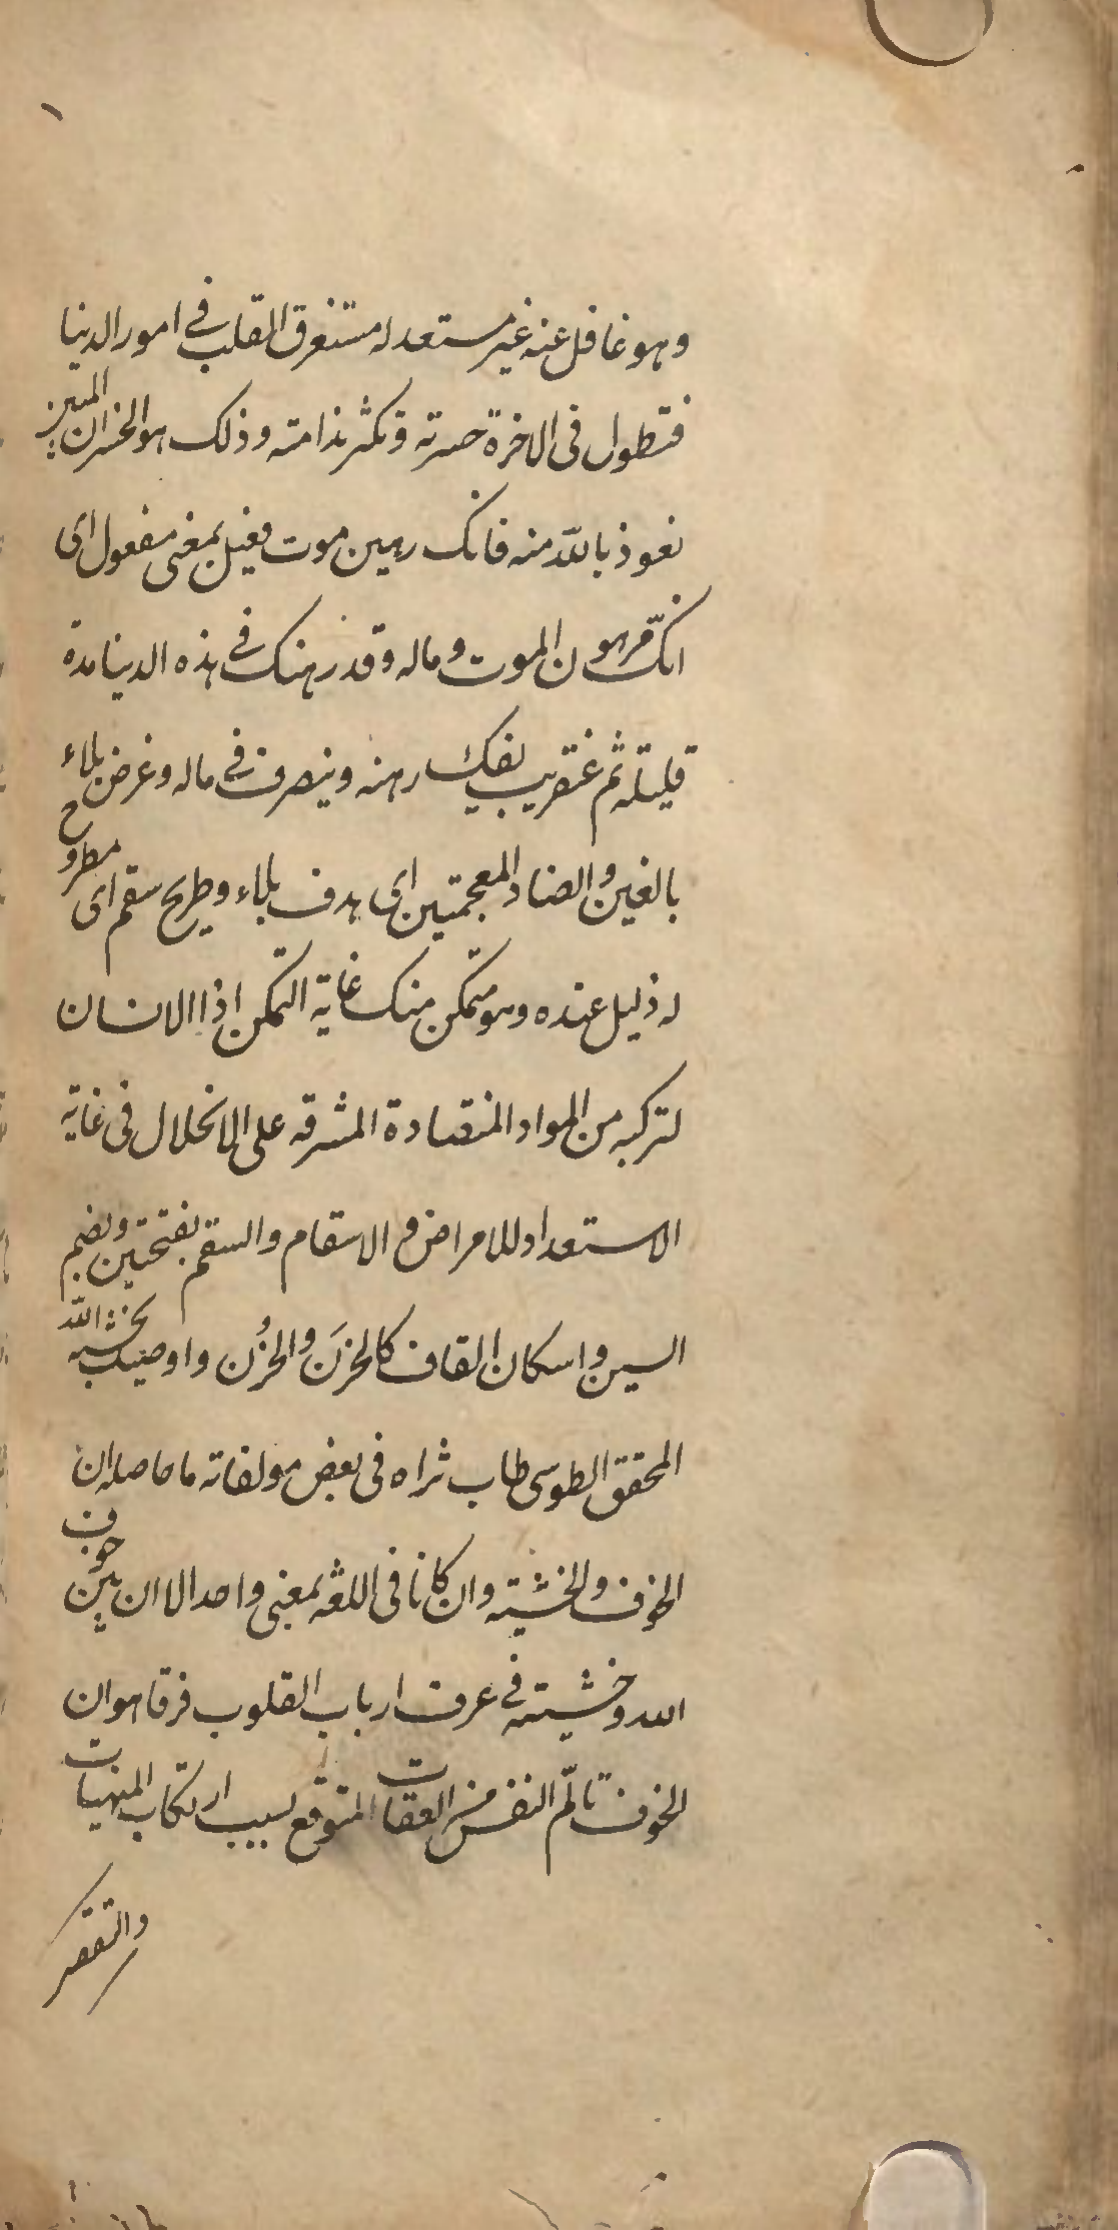 وهو غافل عنه غير مستعد له مستغرق القلب في امور الدنيا
فتطول فى الاخرة حسرته وتكثر ندامته وذلك هو الخسران المبين
نعوذ بالله منه فانك رهين موت فعيل بمعنى مفعول اى
انك مرهون الموت وماله وقد رهنك في هذه الدنيا مدة
قليلة ثم عنقريب يفك رهنه ويتصرف في ماله وغرض بلاء
بالغين والضاد المعجمتين اى هدف بلاء وطريح سقم اى مطروح
له ذليل عنده وهو متمكن منك غاية التمكن اذ الانسان
لتركبه من المواد المتضادة المشرفه على الانحلال فى غاية
الاستعداد للامراض والاسقام والسقم بفتحتين وبضم
السين واسكان القاف كالحزَن والحزُن واوصيك بخشية الله
المحقق الطوسى طاب ثراه فى بعض مولفاته ما حاصله ان
الخوف والخشية وان كانا فى اللغة بمعنى واحد الا ان بين خوف
الله وخشيته في عرف ارباب القلوب فرقا هو ان
الخوف تالّم النفس من العقاب المتوقع بسبب ارتكاب المنهيات
والتقصر